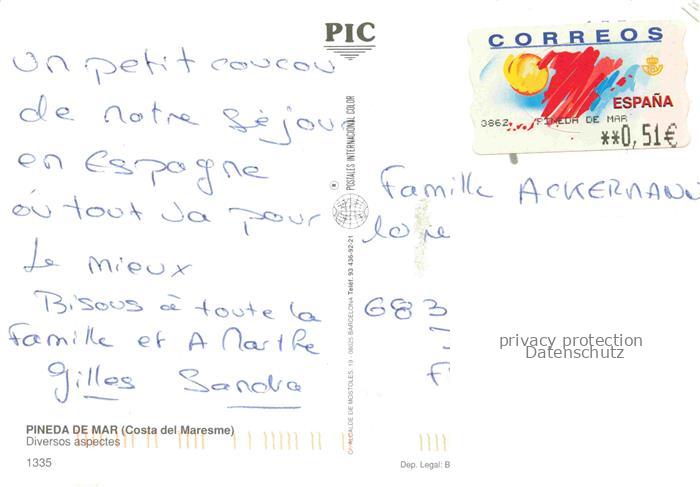 PIC
un petit coucou
de notre séjour
en Espagne
où tout va pour
le mieux
Bisous à toute la
famille et A Marthe
Gilles Sandra
PINEDA DE MAR (Costa del Maresme)
Diversos aspectes
1335
POSTALES INTERNACIONAL COLOR
C/ ALCALDE DE MOSTOLES, 19 - 08025 BARCELONA Teléf. 93 436-92-21
Dep. Legal: B
CORREOS
ESPAÑA
0862 PINEDA DE MAR
**0,51€
Famille ACKERMANN
683
privacy protection
Datenschutz